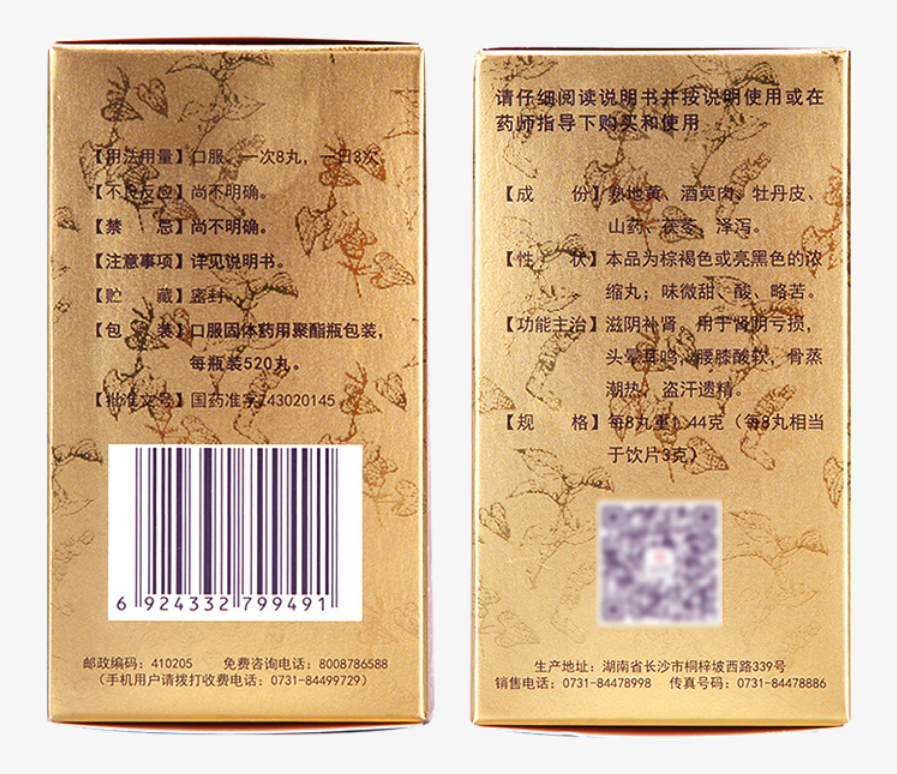 【用法用量】口服。一次8丸，一日3次。
【不良反应】尚不明确。
【禁　　忌】尚不明确。
【注意事项】详见说明书。
【贮　　藏】密封。
【包　　装】口服固体药用聚酯瓶包装，
每瓶装520丸。
【批准文号】国药准字Z43020145
6 924332 799491
邮政编码：410205　免费咨询电话：8008786588
（手机用户请拨打收费电话：0731-84499729）
请仔细阅读说明书并按说明使用或在
药师指导下购买和使用
【成　　份】熟地黄、酒萸肉、牡丹皮、
山药、茯苓、泽泻。
【性　　状】本品为棕褐色或亮黑色的浓
缩丸；味微甜、酸、略苦。
【功能主治】滋阴补肾。用于肾阴亏损，
头晕耳鸣，腰膝酸软，骨蒸
潮热，盗汗遗精。
【规　　格】每8丸重1.44克（每8丸相当
于饮片3克）
生产地址：湖南省长沙市桐梓坡西路339号
销售电话：0731-84478998　传真号码：0731-84478886